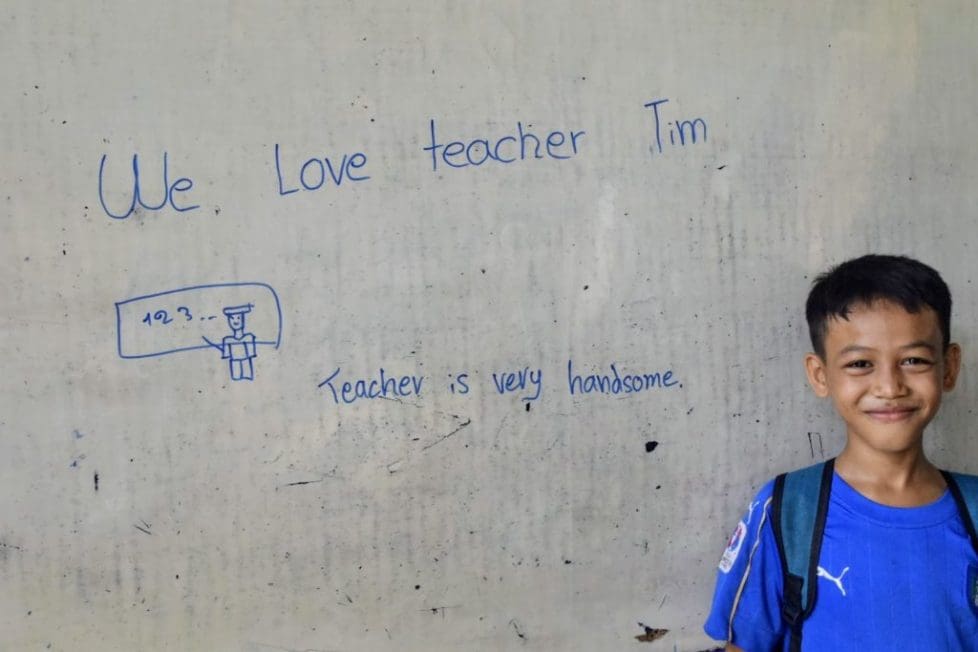 We Love teacher Tim
123...
Teacher is very handsome.